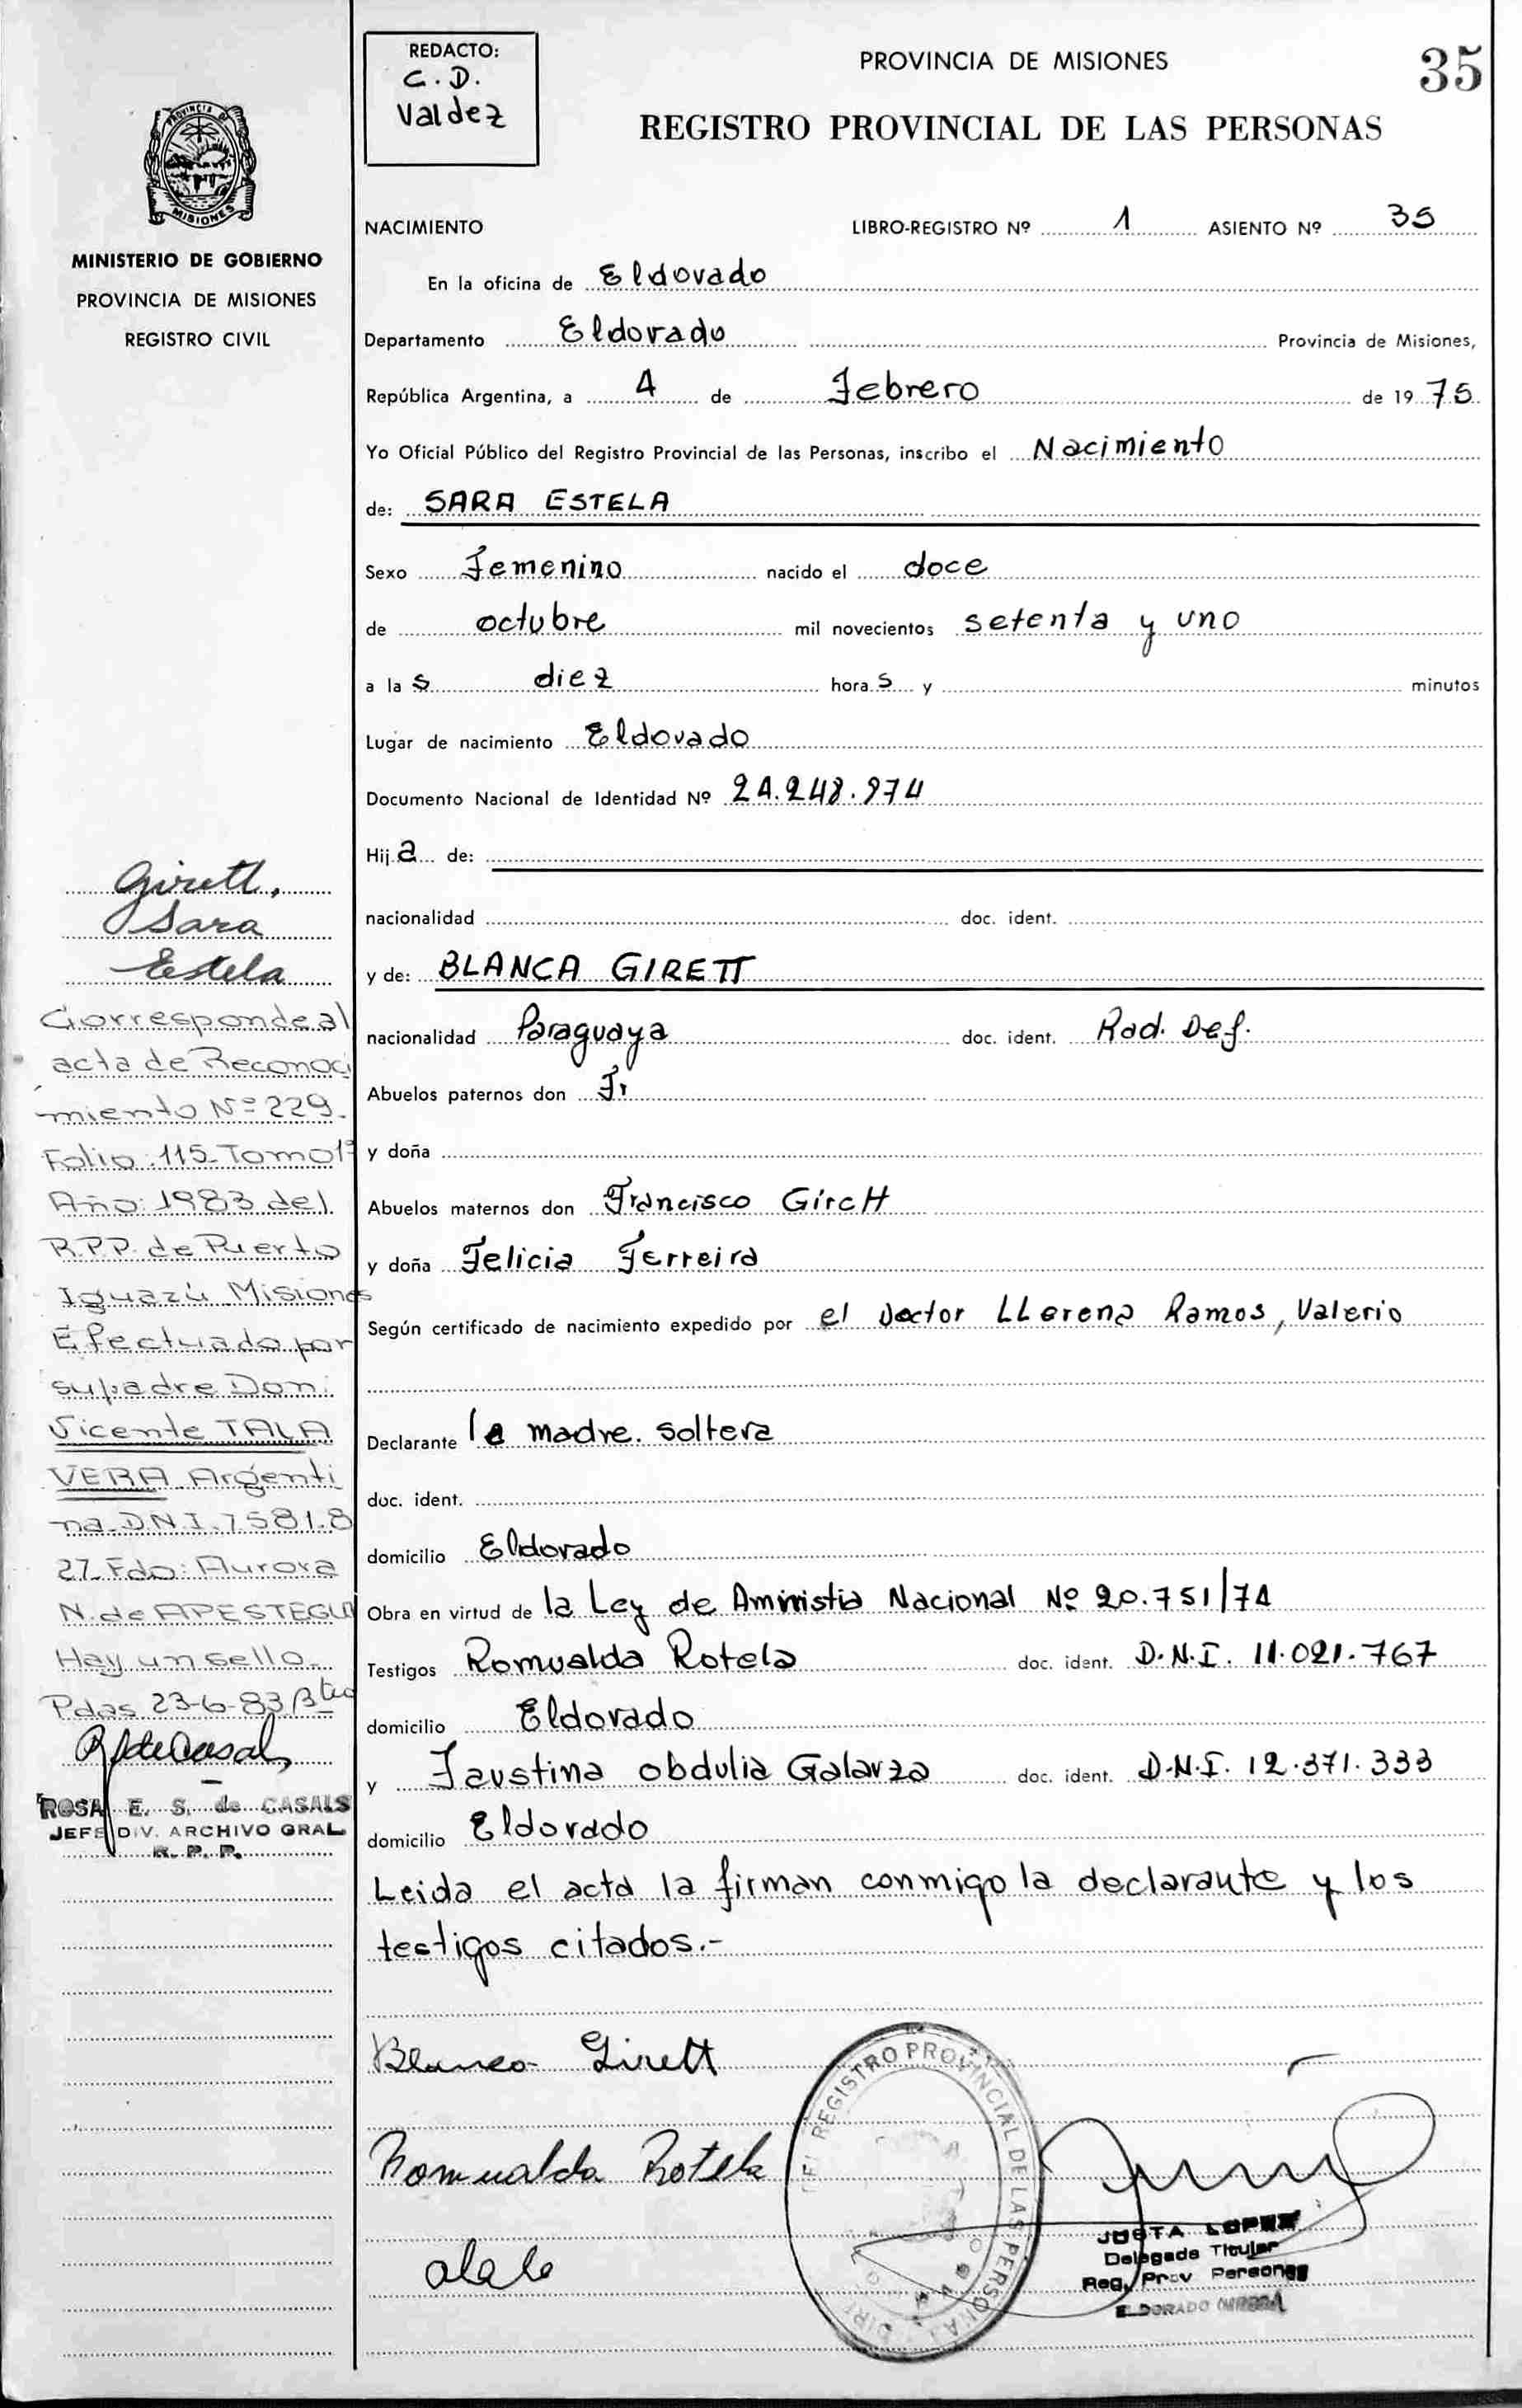 REDACTO:
C. D.
Valdez
PROVINCIA DE MISIONES
35
REGISTRO PROVINCIAL DE LAS PERSONAS
PROVINCIA DE
MISIONES
MINISTERIO DE GOBIERNO
PROVINCIA DE MISIONES
REGISTRO CIVIL
NACIMIENTO LIBRO-REGISTRO Nº 1 ASIENTO Nº 35
En la oficina de Eldorado
Departamento Eldorado Provincia de Misiones,
República Argentina, a 4 de Febrero de 1975
Yo Oficial Público del Registro Provincial de las Personas, inscribo el Nacimiento
de: SARA ESTELA
Sexo Femenino nacido el doce
de octubre mil novecientos setenta y uno
a las diez horas y minutos
Lugar de nacimiento Eldorado
Documento Nacional de Identidad Nº 24.248.974
Hija de:
nacionalidad doc. ident.
y de: BLANCA GIRETT
nacionalidad Paraguaya doc. ident. Rad. Def.
Abuelos paternos don Fr
y doña
Abuelos maternos don Francisco Girett
y doña Felicia Ferreira
Según certificado de nacimiento expedido por el Doctor LLerena Ramos, Valerio
Declarante la madre. soltera
doc. ident.
domicilio Eldorado
Obra en virtud de la Ley de Aministia Nacional Nº 20.751/74
Testigos Romualda Rotela doc. ident. D.N.I. 11.021.767
domicilio Eldorado
y Faustina obdulia Galarza doc. ident. D.N.I. 12.371.333
domicilio Eldorado
Leida el acta la firman conmigo la declarante y los
testigos citados.-
Girett,
Sara
Estela
Corresponde al
acta de Reconoci
miento Nº 229.
Folio: 115 Tomo 1º
Año: 1983 del
R.P.P. de Puerto
Iguazú Misiones
Efectuado por
su padre Don:
Vicente TALA
VERA Argenti
na D.N.I. 7.581.8
27. Fdo: Aurora
N. de APESTEGUI
Hay un sello.
Pdas 23-6-83
ROSA E. S. de CASALS
JEFE DIV. ARCHIVO GRAL.
R. P. P.
Blanca Girett
Romualda Rotela
REGISTRO PROVINCIAL DE LAS PERSONAS
JUSTA LOPEZ
Delegada Titular
Reg. Prov Personas
ELDORADO